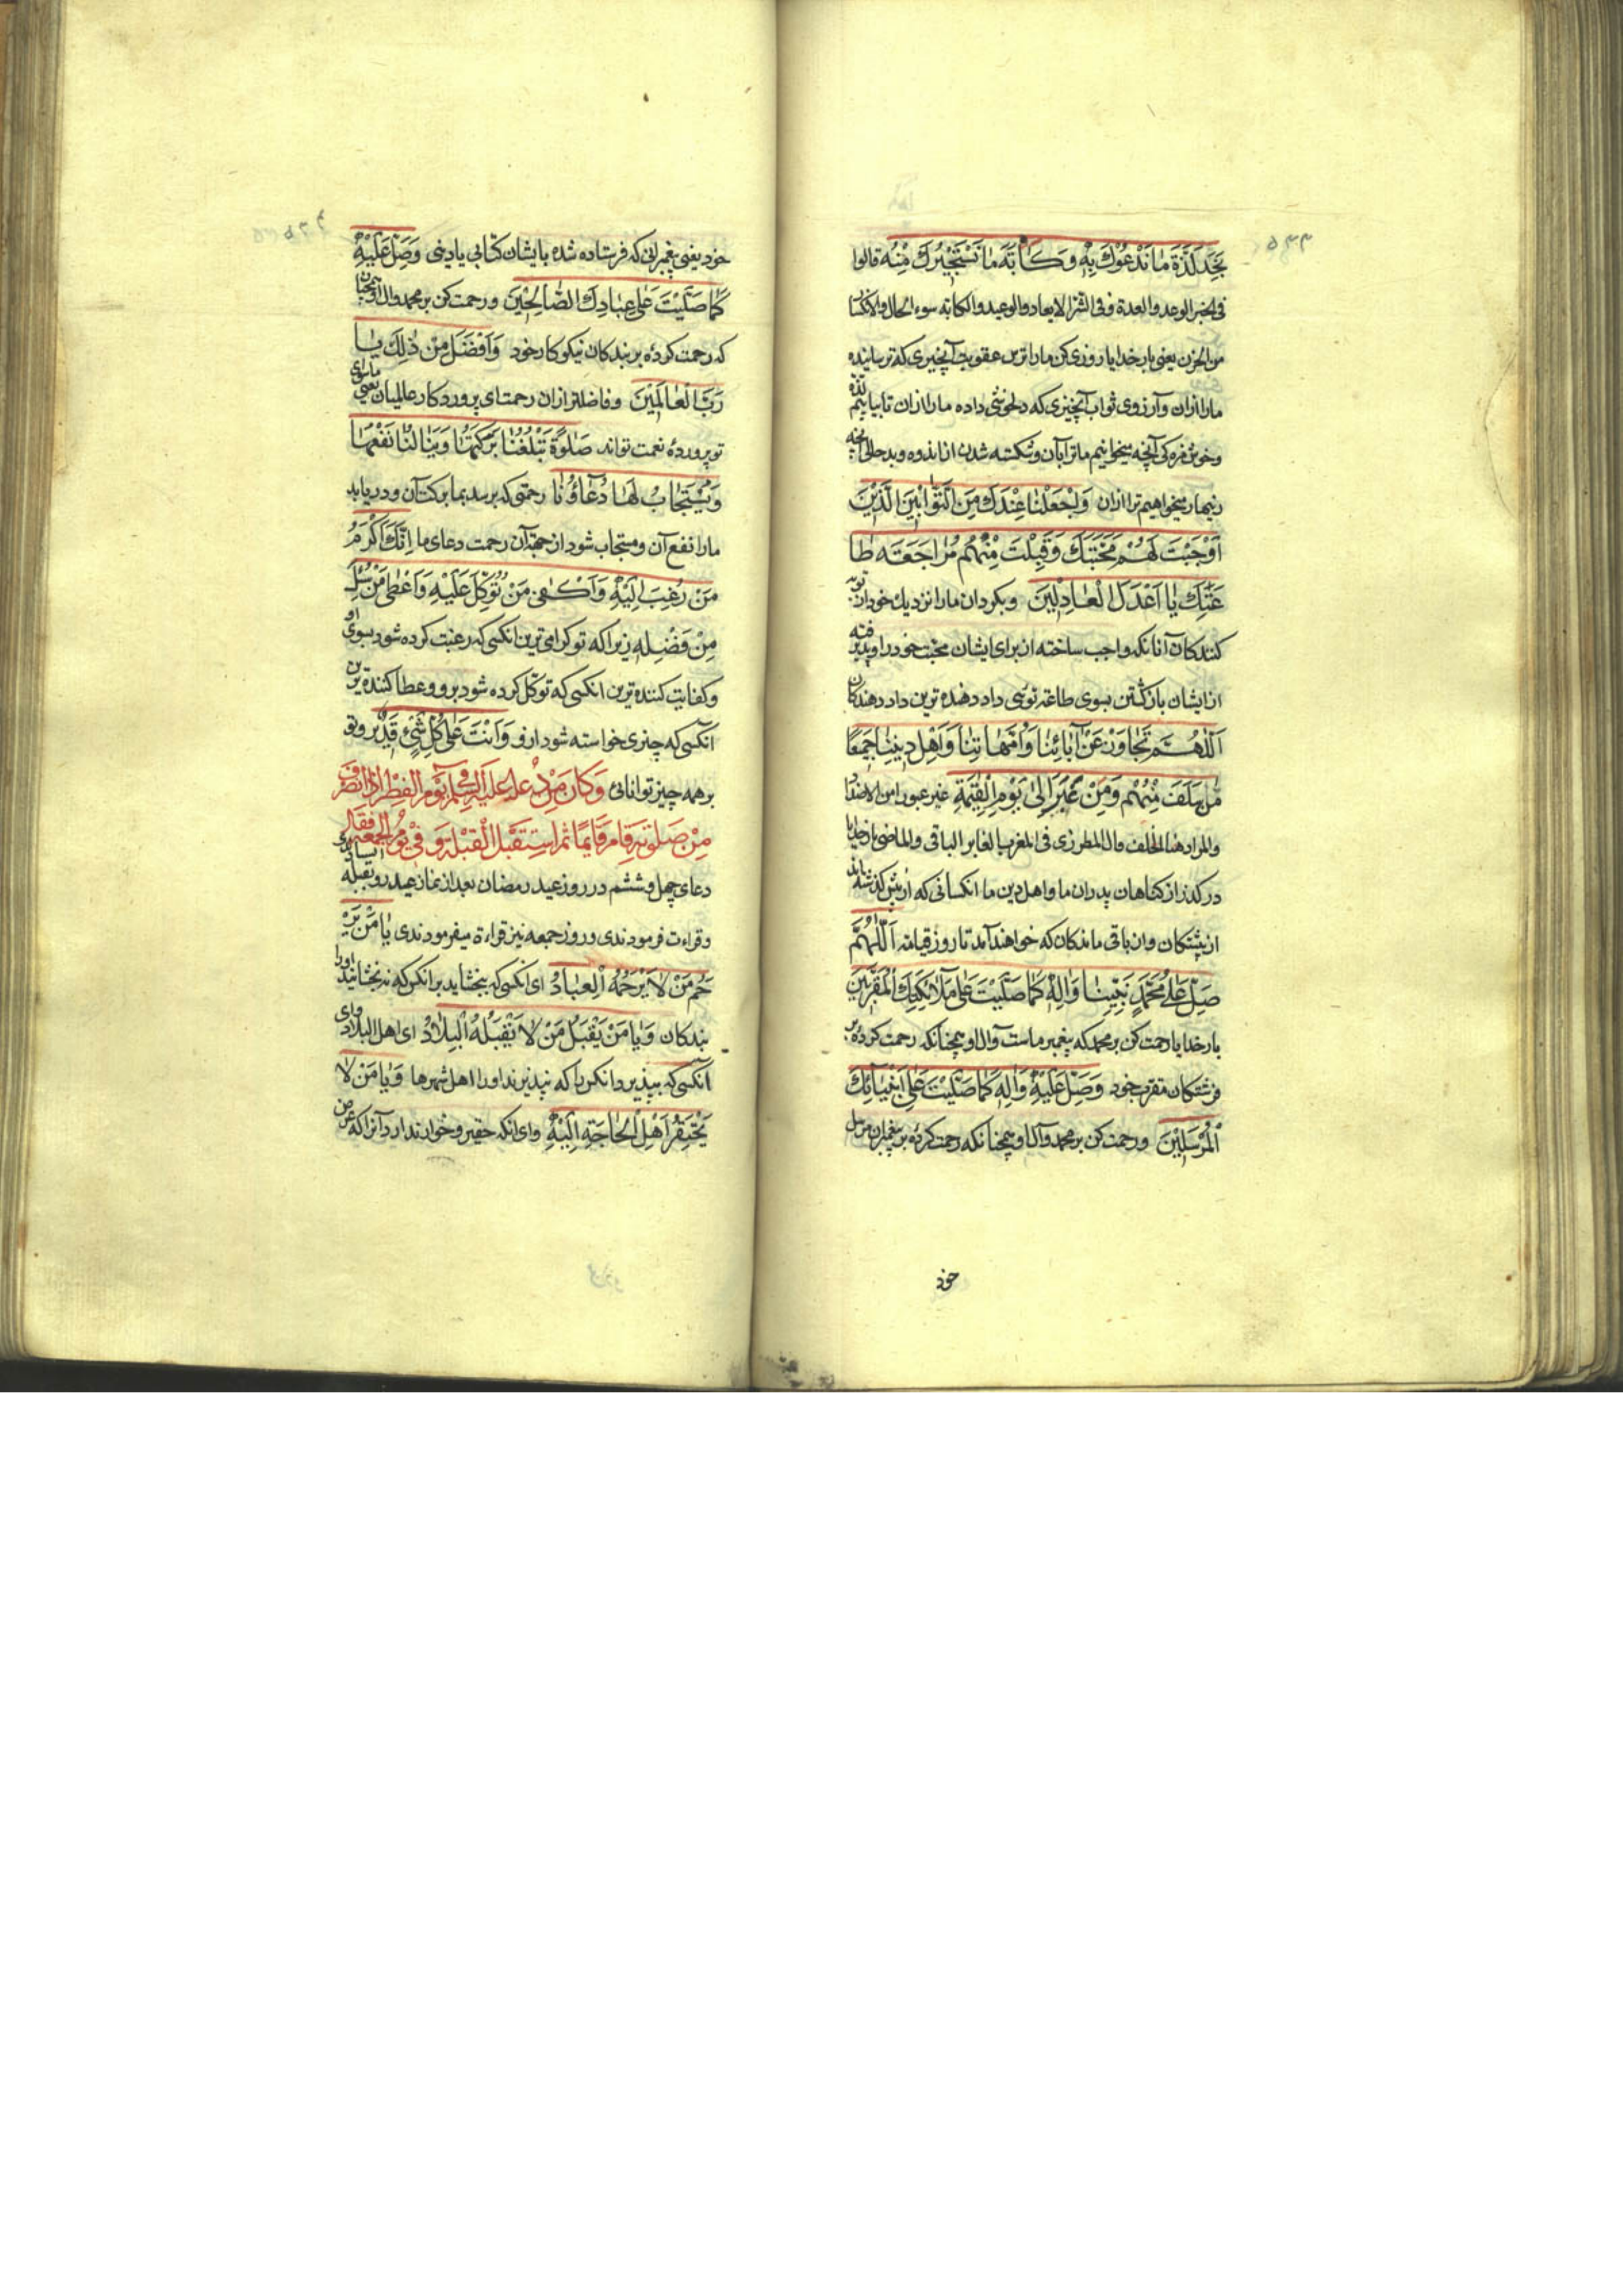 نَجِدَ لَذَّةَ مَا نَدْعُوكَ بِهِ وَكَآبَةَ مَا نَسْتَجِيرُكَ مِنْهُ قالوا
فی الخیر الوعد والعدة وفی الشر الایعاد والوعید والکآبه سوء الحال والانکسا
من الحزن یعنی بار خدایا روزی کن مارا ترس عقوبت آنچیزی که ترسانیده
مارا ازان وآرزوی ثواب آنچیزی که دلخوشی داده مارا ازان تا بیابیم لذة
وخوش مزه کی آنچه میخوانیم ما ترا بآن وشکسته شدن از اندوه وبدحالی آنچه
زینهار میخواهیم ترا ازان وَاجْعَلْنَا عِنْدَكَ مِنَ التَّوَّابِينَ الَّذِينَ
أَوْجَبْتَ لَهُمْ مَحَبَّتَكَ وَقَبِلْتَ مِنْهُمْ مُرَاجَعَةَ طَا
عَتِكَ يَا أَعْدَلَ الْعَادِلِينَ وبکردان مارا نزدیک خود از توبه
کنندکان آنانکه واجب ساخته از برای ایشان محبت خود را وپذیرفته
از ایشان بازکشتن بسوی طاعة توئی داد دهنده ترین داد دهندکان
اَللّٰهُمَّ تَجَاوَزْ عَنْ آبَائِنَا وَأُمَّهَاتِنَا وَأَهْلِ دِينِنَا جَمِيعًا
مَنْ سَلَفَ مِنْهُمْ وَمَنْ غَبَرَ إِلَى يَوْمِ الْقِيٰمَةِ غبر غبورا من الاضداد
والمراد هنا الخلف قال المطرزی فی المغرب الغابر الباقی والماضی بارخدایا
درکذر از کناهان پدران ما ومادران ما واهل دین ما انکسانی که از پیش کذشته اند
از پیشکان وان باقی ماندکان که خواهند آمد تا روز قیامة اَللّٰهُمَّ
صَلِّ عَلَى مُحَمَّدٍ نَبِيِّنَا وَآلِهِ كَمَا صَلَّيْتَ عَلَى مَلَائِكَتِكَ الْمُقَرَّبِينَ
بار خدایا رحمت کن بر محمد که پیغمبر ماست وآل او همچنانکه رحمت کردهٔ بر
فرشتکان مقرب خود وَصَلِّ عَلَيْهِ وَآلِهِ كَمَا صَلَّيْتَ عَلَى أَنْبِيَائِكَ
الْمُرْسَلِينَ ورحمت کن بر محمد وآل او همچنانکه رحمت کردهٔ بر پیغمبران مرسل
خود
خود یعنی پیغمبرانی که فرستاده شده بایشان کتابی یا دینی وَصَلِّ عَلَيْهِ
كَمَا صَلَّيْتَ عَلَى عِبَادِكَ الصَّالِحِينَ ورحمت کن بر محمد وآل او همچنان
که رحمت کردهٔ بر بندکان نیکوکار خود وَأَفْضَلَ مِنْ ذٰلِكَ يَا
رَبَّ الْعَالَمِينَ وفاضلتر ازان رحمت ای پروردکار عالمیان یعنی
تو پروردهٔ نعمت تواند صَلٰوةً تَبْلُغُنَا بَرَكَتُهَا وَيَنَالُنَا نَفْعُهَا
وَيُسْتَجَابُ لَهَا دُعَاؤُنَا رحمتی که برسد بما برکت آن ودریابد
مارا نفع آن ومستجاب شود از جهة آن رحمت دعای ما إِنَّكَ أَكْرَمُ
مَنْ رُغِبَ إِلَيْهِ وَأَكْفَى مَنْ تُوُكِّلَ عَلَيْهِ وَأَعْطَى مَنْ سُئِلَ
مِنْ فَضْلِهِ زیرا که تو کرامی ترین انکسی که رغبت کرده شود بسوی او
وکفایت کننده ترین انکسی که توکّل کرده شود برو وعطا کننده ترین
انکسی که چیزی خواسته شود ازو وَأَنْتَ عَلَى كُلِّ شَيْءٍ قَدِيرٌ وتو
بر همه چیز توانائی وَكَانَ مِنْ دُعَائِهِ عَلَيْهِ السَّلَمُ فِي يَوْمِ الْفِطْرِ إِذَا انْصَرَفَ
مِنْ صَلٰوتِهِ قَامَ قَائِمًا ثُمَّ اسْتَقْبَلَ الْقِبْلَةَ وَفِي يَوْمِ الْجُمُعَةِ فَقَالَ
دعای چهل وششم در روز عید رمضان بعد از نماز عید رو بقبله
وقراءت فرمودندی وروز جمعه نیز قراءة میفرمودندی يَا مَنْ يَرْ
حَمُ مَنْ لَا يَرْحَمُهُ الْعِبَادُ ای انکسی که ببخشاید بر انکس که نبخشایند اورا
بندکان وَيَا مَنْ يَقْبَلُ مَنْ لَا تَقْبَلُهُ الْبِلَادُ ای اهل البلاد وای
انکسی که بپذیرد انکس را که نپذیرند اورا اهل شهرها وَيَا مَنْ لَا
يَحْتَقِرُ أَهْلَ الْحَاجَةِ إِلَيْهِ وای انکه حقیر وخوار ندارد آنرا که عرض